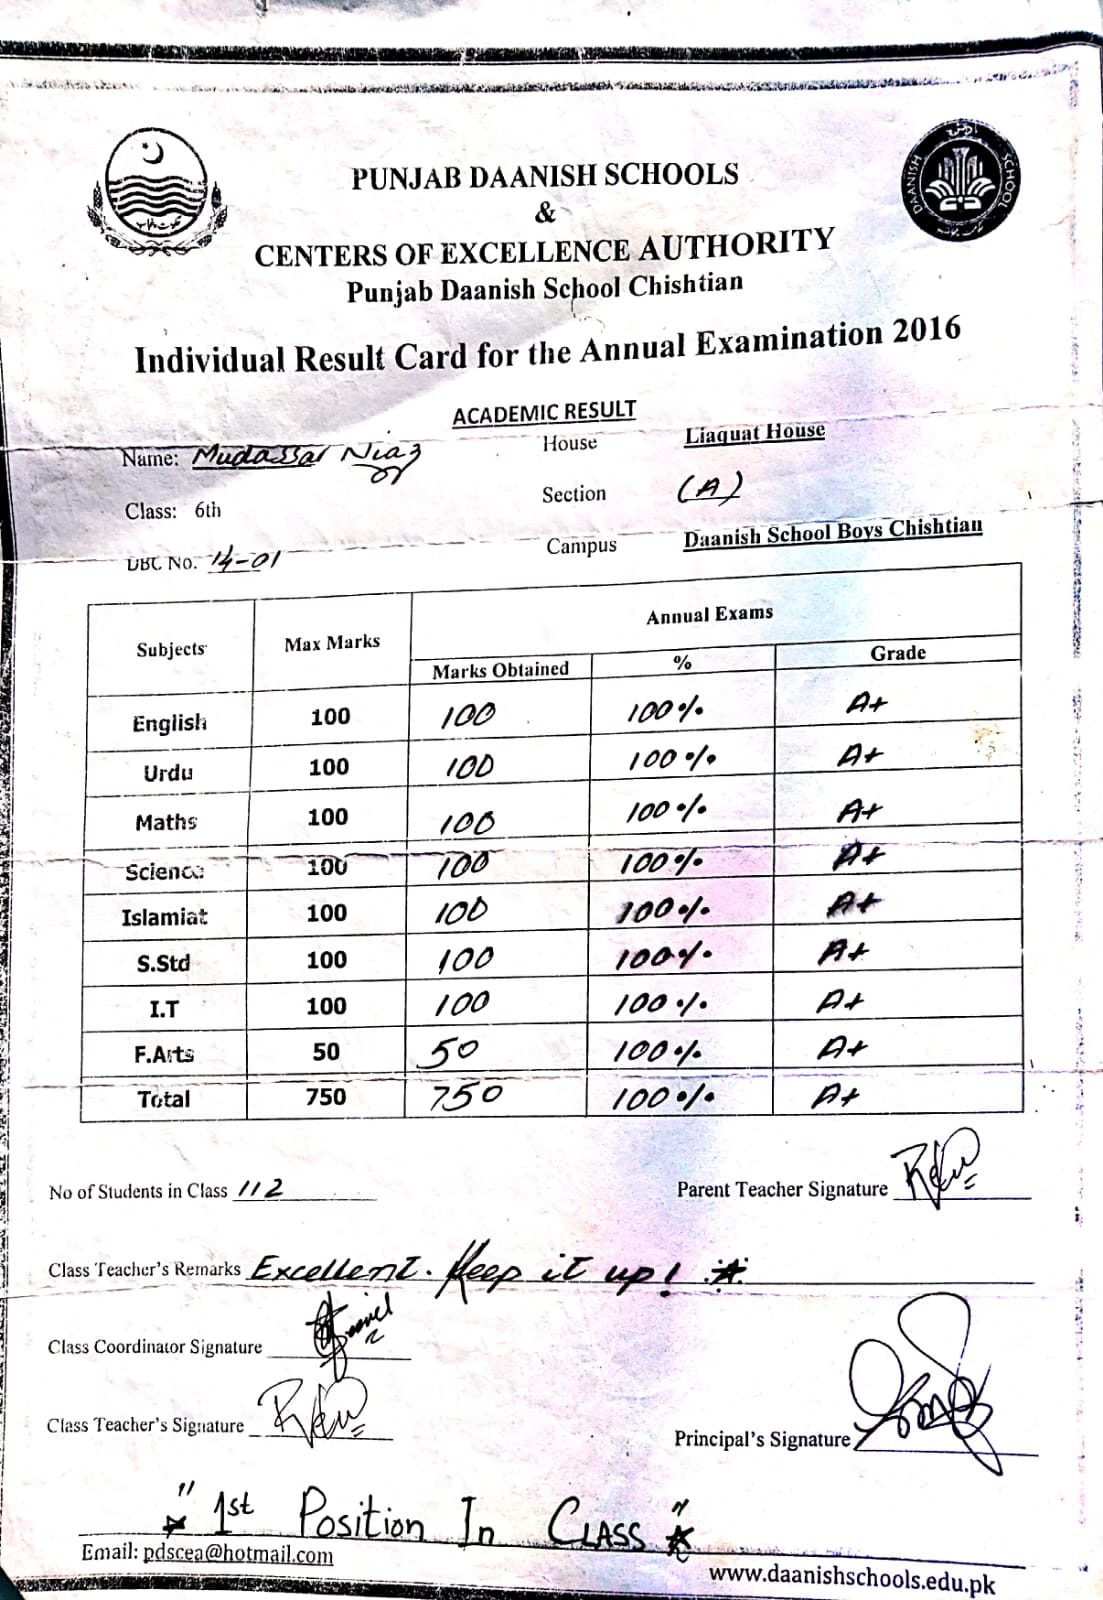 PUNJAB DAANISH SCHOOLS
&
CENTERS OF EXCELLENCE AUTHORITY
Punjab Daanish School Chishtian
DAANISH SCHOOL
Individual Result Card for the Annual Examination 2016
ACADEMIC RESULT
Name: Mudassar Niaz House Liaquat House
Class: 6th Section (A)
DBC No. 14-01 Campus Daanish School Boys Chishtian
Subjects Max Marks Annual Exams
Marks Obtained % Grade
English 100 100 100% A+
Urdu 100 100 100% A+
Maths 100 100 100% A+
Science 100 100 100% A+
Islamiat 100 100 100% A+
S.Std 100 100 100% A+
I.T 100 100 100% A+
F.Arts 50 50 100% A+
Total 750 750 100% A+
No of Students in Class 112 Parent Teacher Signature
Class Teacher's Remarks Excellent. Keep it up!
Class Coordinator Signature
Class Teacher's Signature Principal's Signature
"1st Position In CLASS"
Email: pdscea@hotmail.com
www.daanishschools.edu.pk